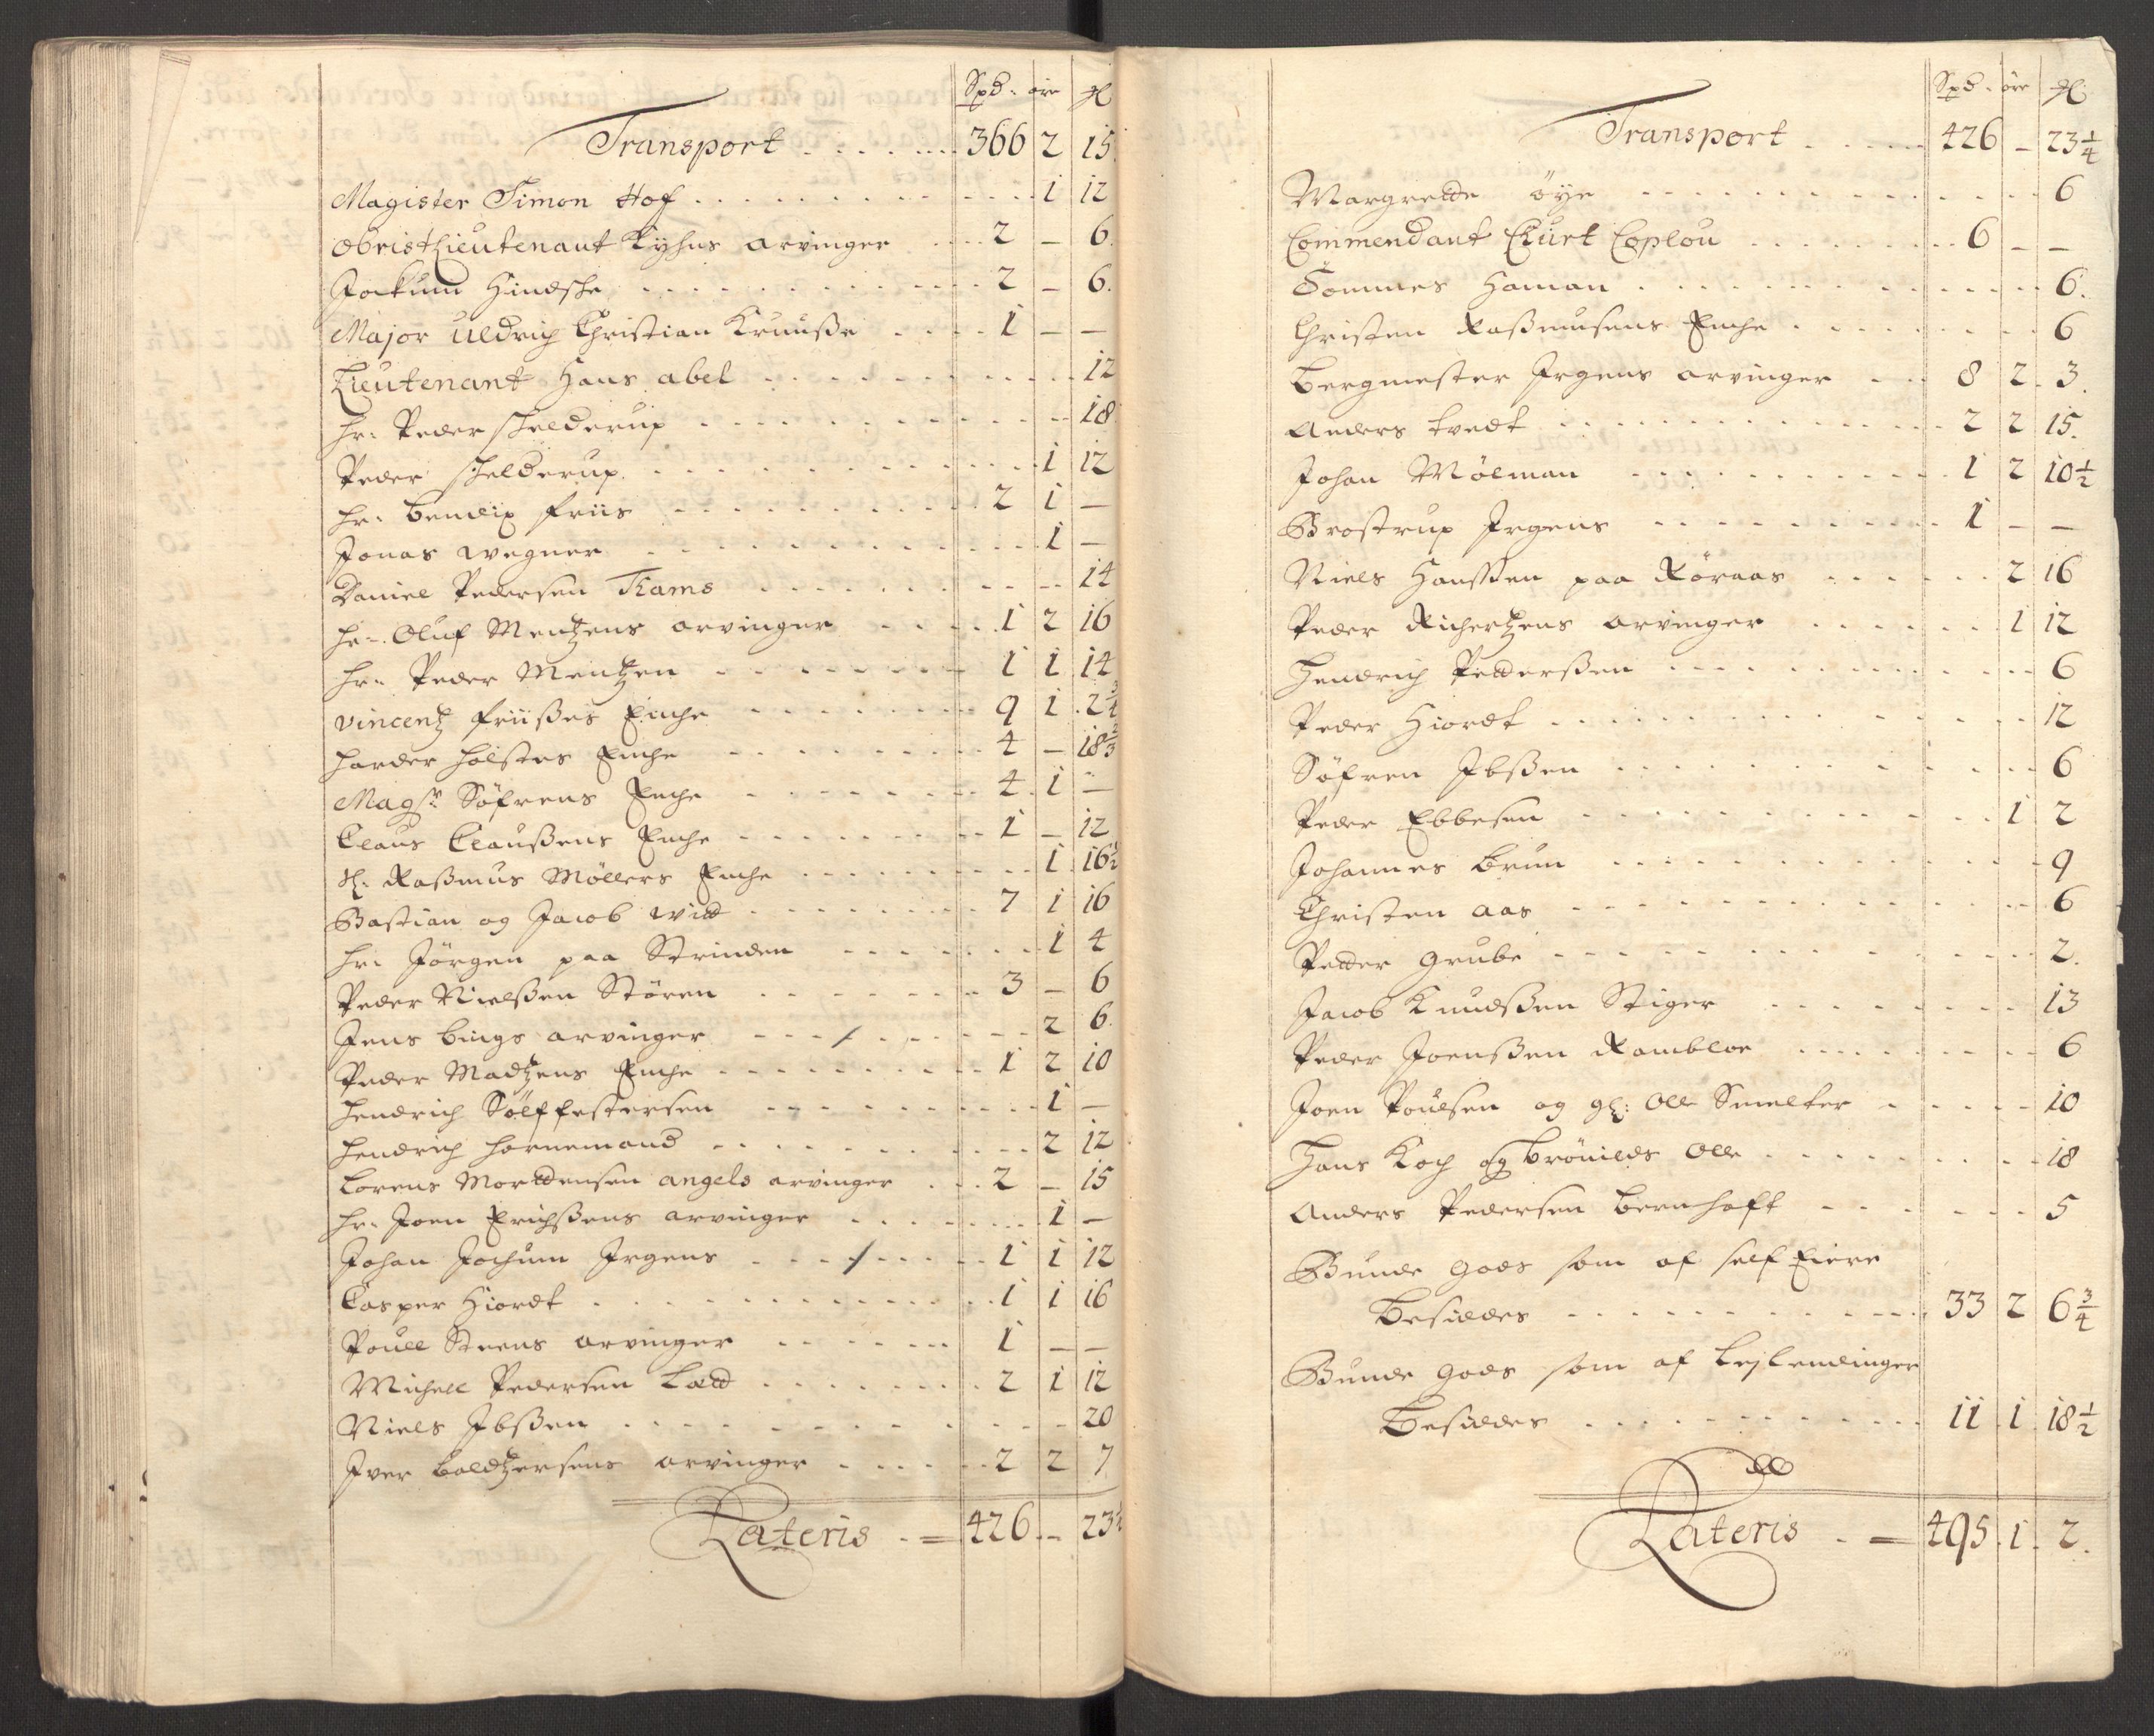 Spd. øre gl
Transport 366 2 15
Magister Simon Hof 1 12
Obristlieutenant Kyhns arvinger 2 – 6
Jockum Hindsche 2 – 6
Major Uldrich Christian Kruusse 1 – –
Lieutenant Hans abel 12
hr: Peder Schelderup 18
Peder Schelderup 1 12
hr: bendix friis 2 1 –
Jonas wegner 1 –
Daniel Pedersen Trams 14
hr: Oluf Mentzens arvinger 1 2 16
hr: Peder Mentzen 1 1 14
vincentz friisses Enche 9 1 2 3/4
harder holsters Enche 4 – 18 2/3
Magsr Søfrens Enche 4 1 –
Claus Claussens Enche 1 – 12
Sl: Rassmus Møllers Enche 1 16 1/2
Bastian og Jacob widd 7 1 16
hr: Jörgen paa Strinden 1 4
Peder Nielssen Stören 3 – 6
Jens bings arvinger 2 6
Peder Madtzens Enche 1 2 10
hendrich Sölffestersen 1 –
hendrich hornemand 2 12
Lorens Morttensen angels arvinger 2 – 15
hr: Joen Erichssens arvinger 1 –
Johan Jochum Jrgens 1 1 12
Casper Hiordt 1 1 16
Poull Steens arvinger 1 – –
Michell Pedersen Lædd 2 1 12
Niels Jbssen 20
Jver baldtzersens arvinger 2 2 7
Lateris 426 – 23 1/4
Spd. øre gl:
Transport 426 – 23 1/4
Margrette öye 6
Commendant Churt Coplou 6 – –
Tommes Haman 6
Christen Rassmusens Enche 6
bergmester Jrgens arvinger 8 2 3
Anders tvedt 2 2 15
Johan Mölman 1 2 10 1/2
Brostrup Jrgens 1 – –
Niels Hanssen paa Röraas 2 16
Peder Richertzens arvinger 1 12
Hendrich Pedderssen 6
Peder Hiordt 12
Söfren Jbssen 6
Peder Ebbesen 1 2
Johannes brun 9
Christen aas 6
Petter Grube 2
Jacob Knudssen Stiger 13
Peder Joenssen Rambloe 6
Joen Poulsen og gl: Olle Smelter 10
Hans Koch og brönilds Olle 18
Anders Pedersen bernhoft 5
Bunde gods som af self Eiere
besiddes 33 2 6 3/4
Bunde gods som af Lejlendinger
besiddes 11 1 18 1/2
Lateris 495 1 2